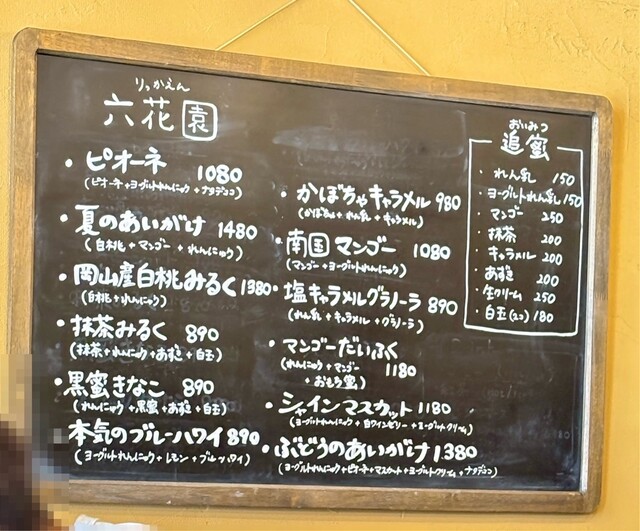 りっかえん
六花園
・ピオーネ 1080
(ピオーネ+ヨーグルトれんにゅう+ナタデココ)
・夏のあいがけ 1480
(白桃+マンゴー+れんにゅう)
・岡山産白桃みるく 1380
(白桃+れんにゅう)
・抹茶みるく 890
(抹茶+れんにゅう+あずき+白玉)
・黒蜜きなこ 890
(れんにゅう+黒蜜+あずき+白玉)
・本気のブルーハワイ 890
(ヨーグルトれんにゅう+レモン+ブルーハワイ)
・かぼちゃキャラメル 980
(かぼちゃ+れん乳+キャラメル)
・南国マンゴー 1080
(マンゴー+ヨーグルトれんにゅう)
・塩キャラメルグラノーラ 890
(れん乳+キャラメル+グラノーラ)
・マンゴーだいふく
(れんにゅう+マンゴー 1180
+おもち)
・シャインマスカット 1180
(ヨーグルトれんにゅう+白ワインゼリー+ヨーグルトクリーム)
・ぶどうのあいがけ 1,380
(ヨーグルトれんにゅう+ピオーネ+マスカット+ヨーグルトクリーム+ナタデココ)
おいみつ
追蜜
・れん乳 150
・ヨーグルトれん乳 150
・マンゴー 250
・抹茶 200
・キャラメル 200
・あずき 200
・生クリーム 250
・白玉(2コ) 180